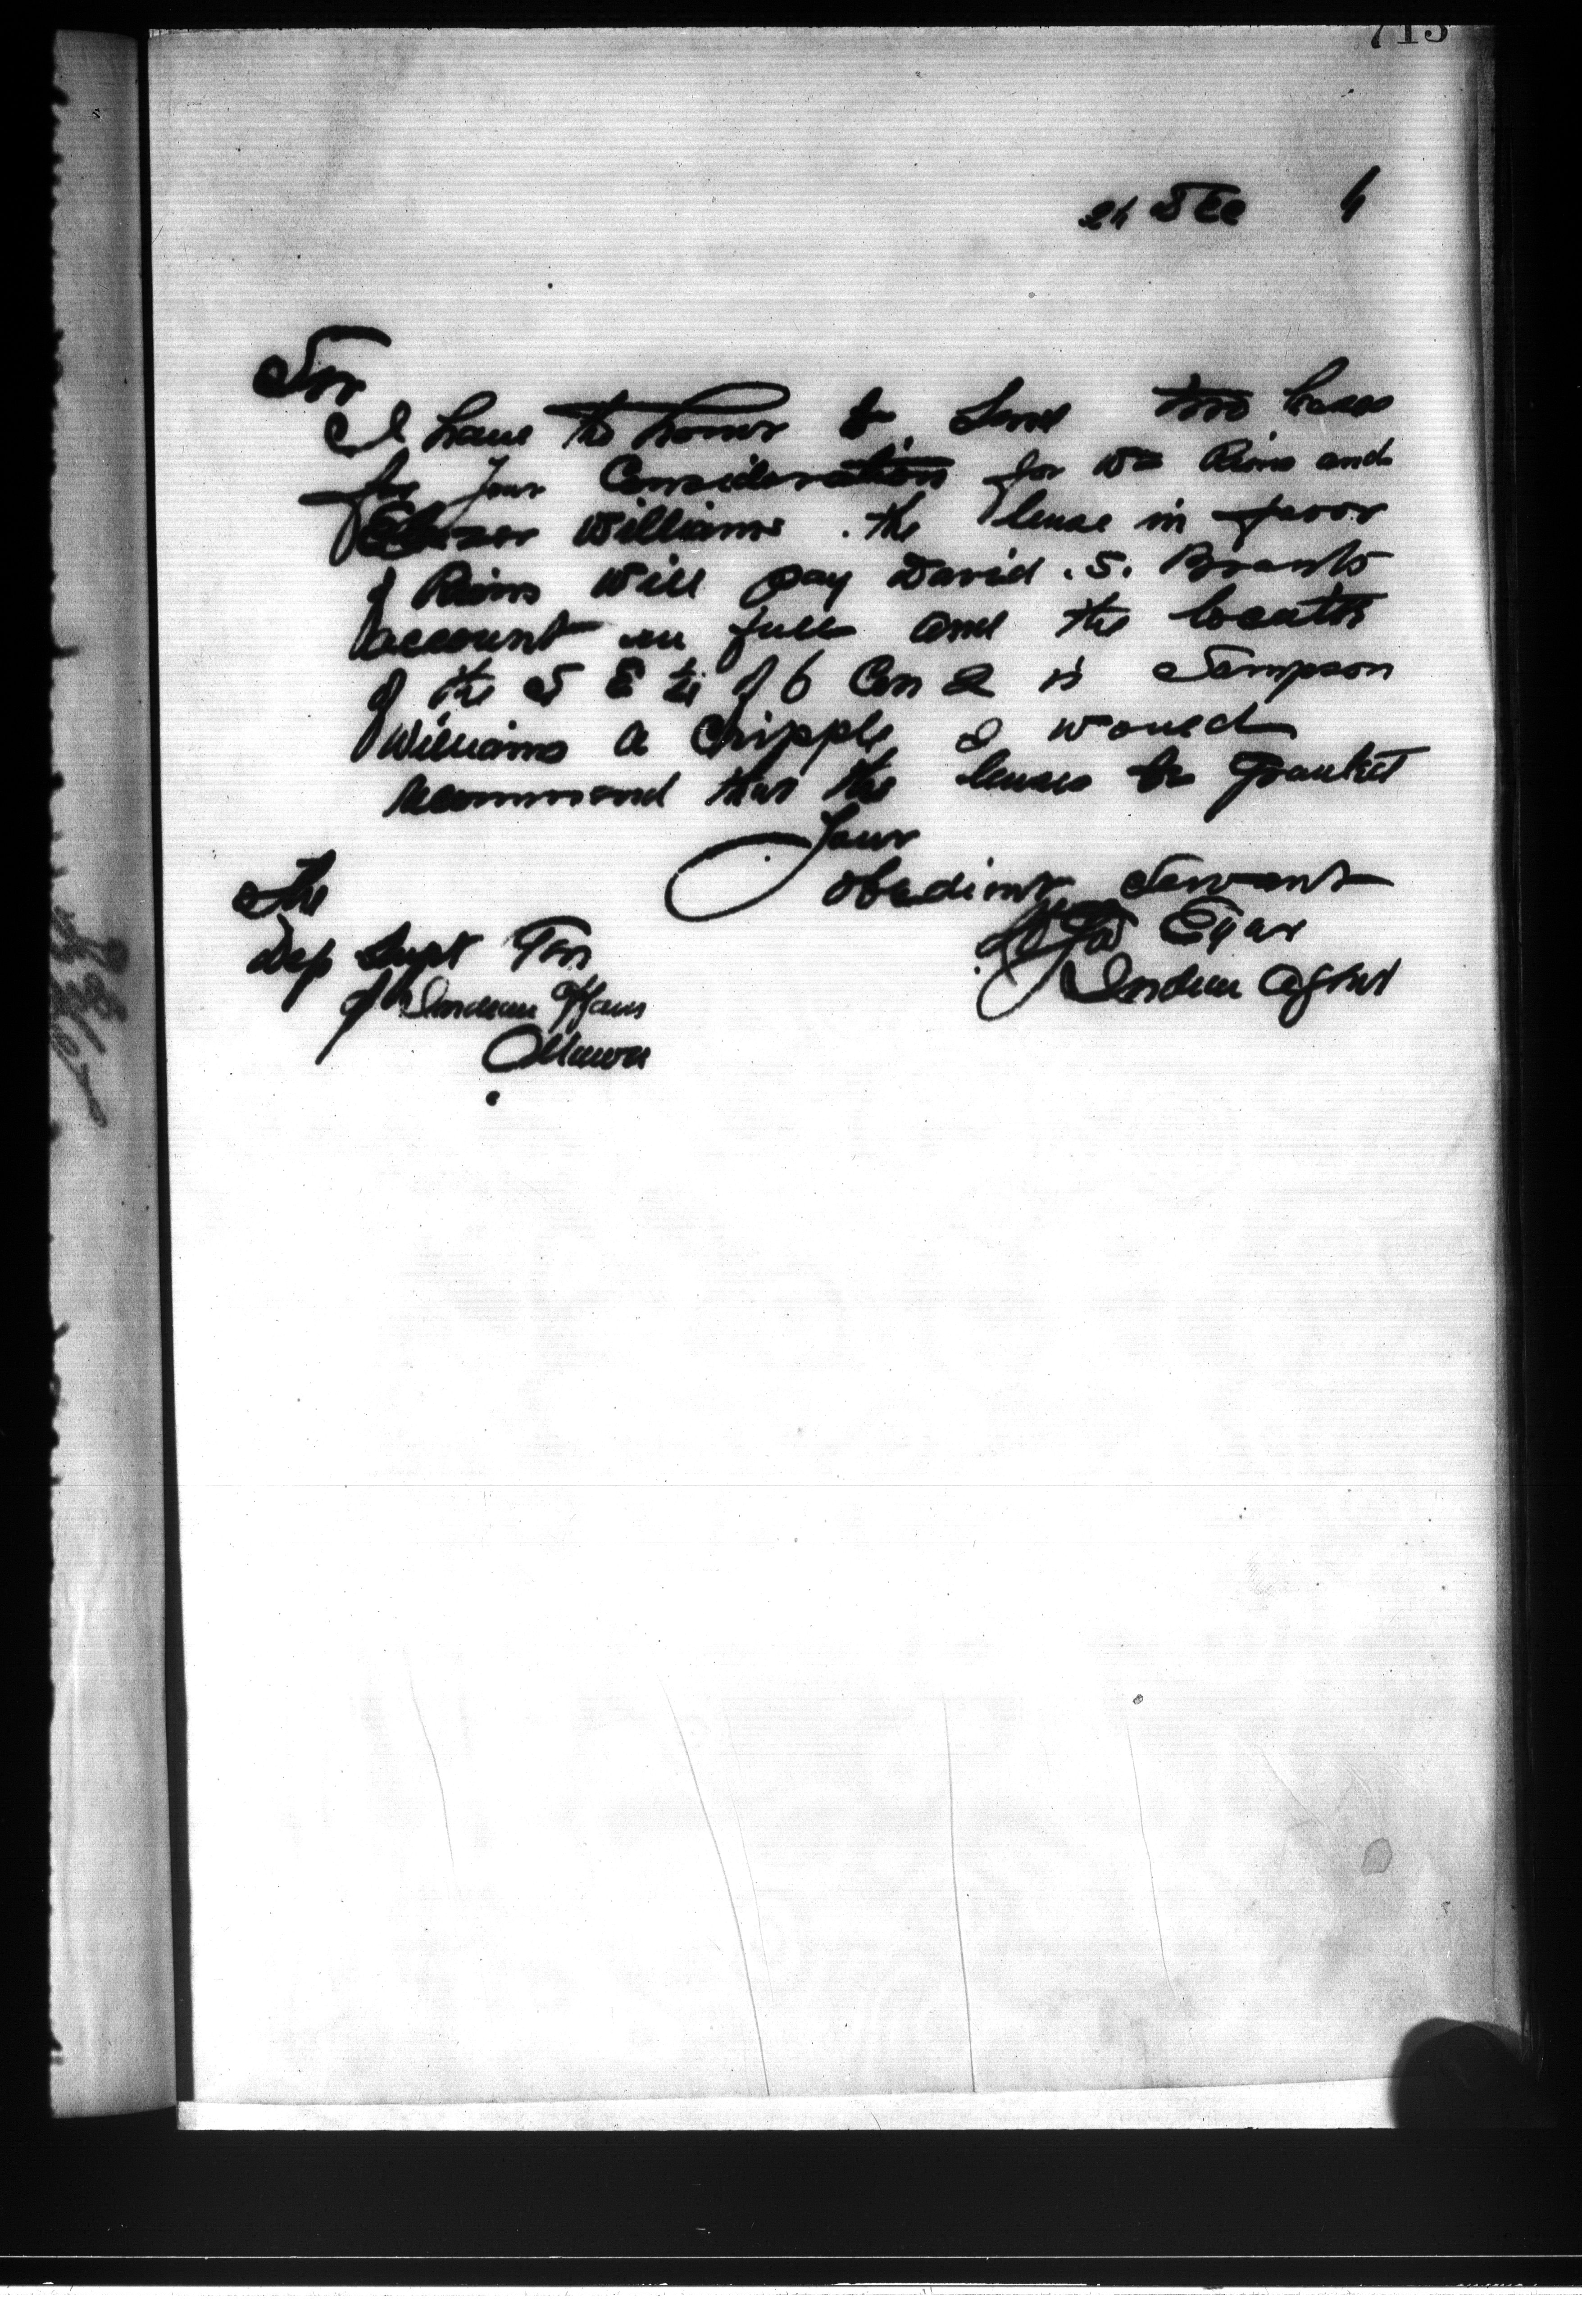 713
24 Dec 4
Sir
I have the honor to send two leases
for your Consideration for Wm Rims and
Williams. the lease in favor
of Rims will pay David. S. Brants
account in full and the locatee
of the S E ¼ of 6 Con 2 is Sampson
Williams a Cripple I would
recommend that the leases be granted
Your
obedient Servant
The
Indian Agent
Dep Supt Gen
of Indian Affairs
Ottawa